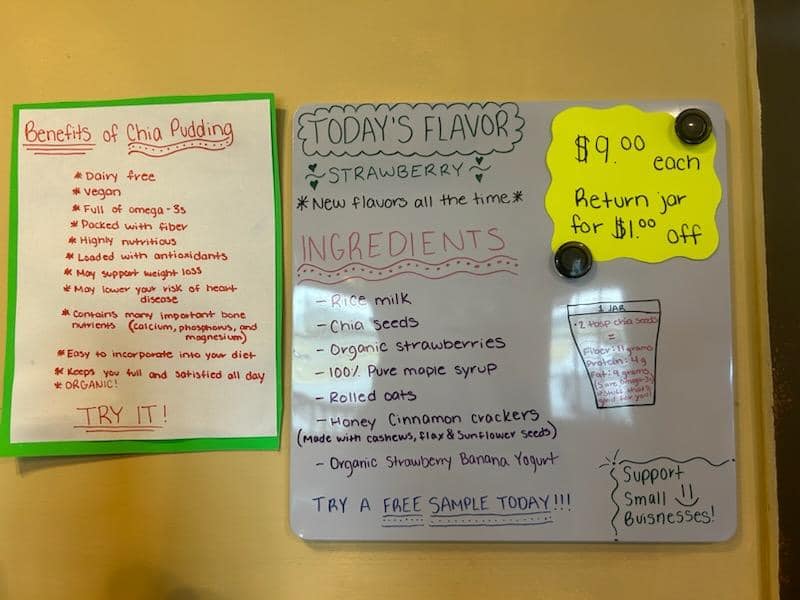 Benefits of Chia Pudding
* Dairy free
* Vegan
* Full of omega-3s
* Packed with fiber
* Highly nutritious
* Loaded with antioxidants
* May support weight loss
* May lower your risk of heart
disease
* Contains many important bone
nutrients (calcium, phosphorus, and
magnesium)
* Easy to incorporate into your diet
* Keeps you full and satisfied all day
* ORGANIC!
TRY IT!
TODAY'S FLAVOR
STRAWBERRY
* New flavors all the time *
INGREDIENTS
- Rice milk
- Chia seeds
- Organic strawberries
- 100% Pure maple syrup
- Rolled oats
- Honey Cinnamon crackers
(Made with cashews, flax & sunflower seeds)
- Organic Strawberry Banana Yogurt
TRY A FREE SAMPLE TODAY!!!
$9.00 each
Return jar
for $1.00 off
1 JAR
2 tbsp chia seeds
=
Fiber: 11 grams
Protein: 4g
Fat: 9 grams
good for you!
Support
Small
Buisnesses!